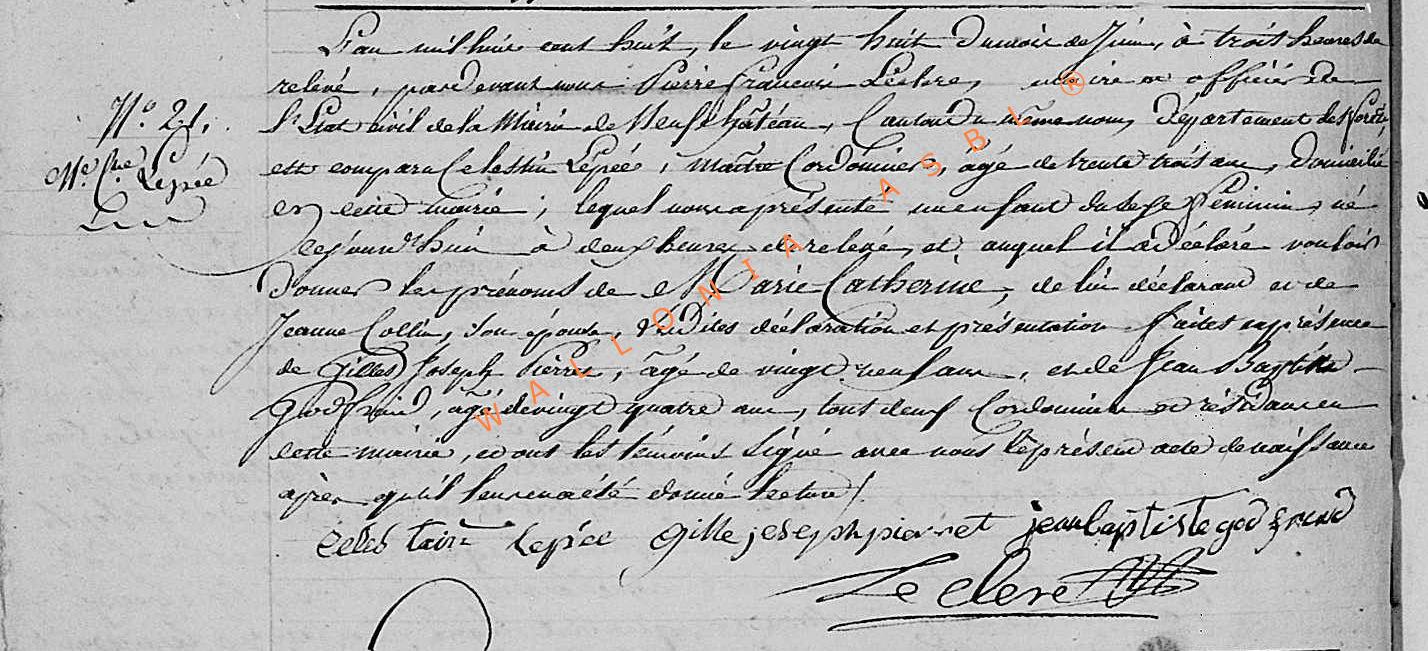 L'an mil huit cent huit, le vingt huit du mois de Juin, à trois heures de
relevé, pardevant nous Pierre François Leclere, maire et officier de
l'Etat civil de la Mairie de Neufchâteau, Canton du même nom, Département des Forêts,
est comparu Celestin Lepée, Maître Cordonnier, âgé de trente trois ans, domicilié
en cette mairie, lequel nous a présenté un enfant du sexe féminin, né
N° 21.
Me. Cne. Lepée
cejourd'hui à deux heures de relevé, et auquel il a déclaré vouloir
donner les prénoms de Marie Catherine, de lui déclarant et de
Jeanne Collin, son épouse, lesdites déclaration et présentation faites en présence
de Gilles Joseph Pierret, âgé de vingt neuf ans, et de Jean Baptiste
Godfrind, âgé de vingt quatre ans, tout deux Cordonniers et résidans en
cette mairie, et ont les témoins signé avec nous le présent acte de naissance
après qu'il leur en a été donné lecture /.
Celes tain Lepée Gille joseph pierret jean baptiste god frind
Leclere
WALLONIA ASBL ®